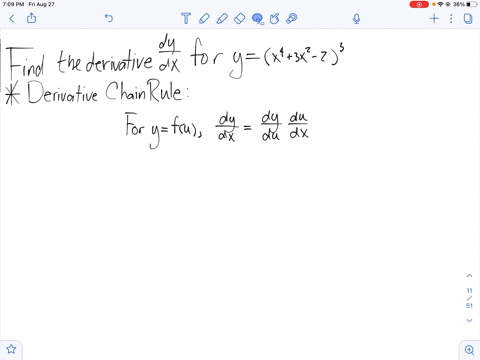 7:09 PM Fri Aug 27
36%
Find the derivative dy/dx for y = (x⁴+3x²-2)
* Derivative Chain Rule:
For y=f(u), dy/dx = dy/du du/dx
11
/
51